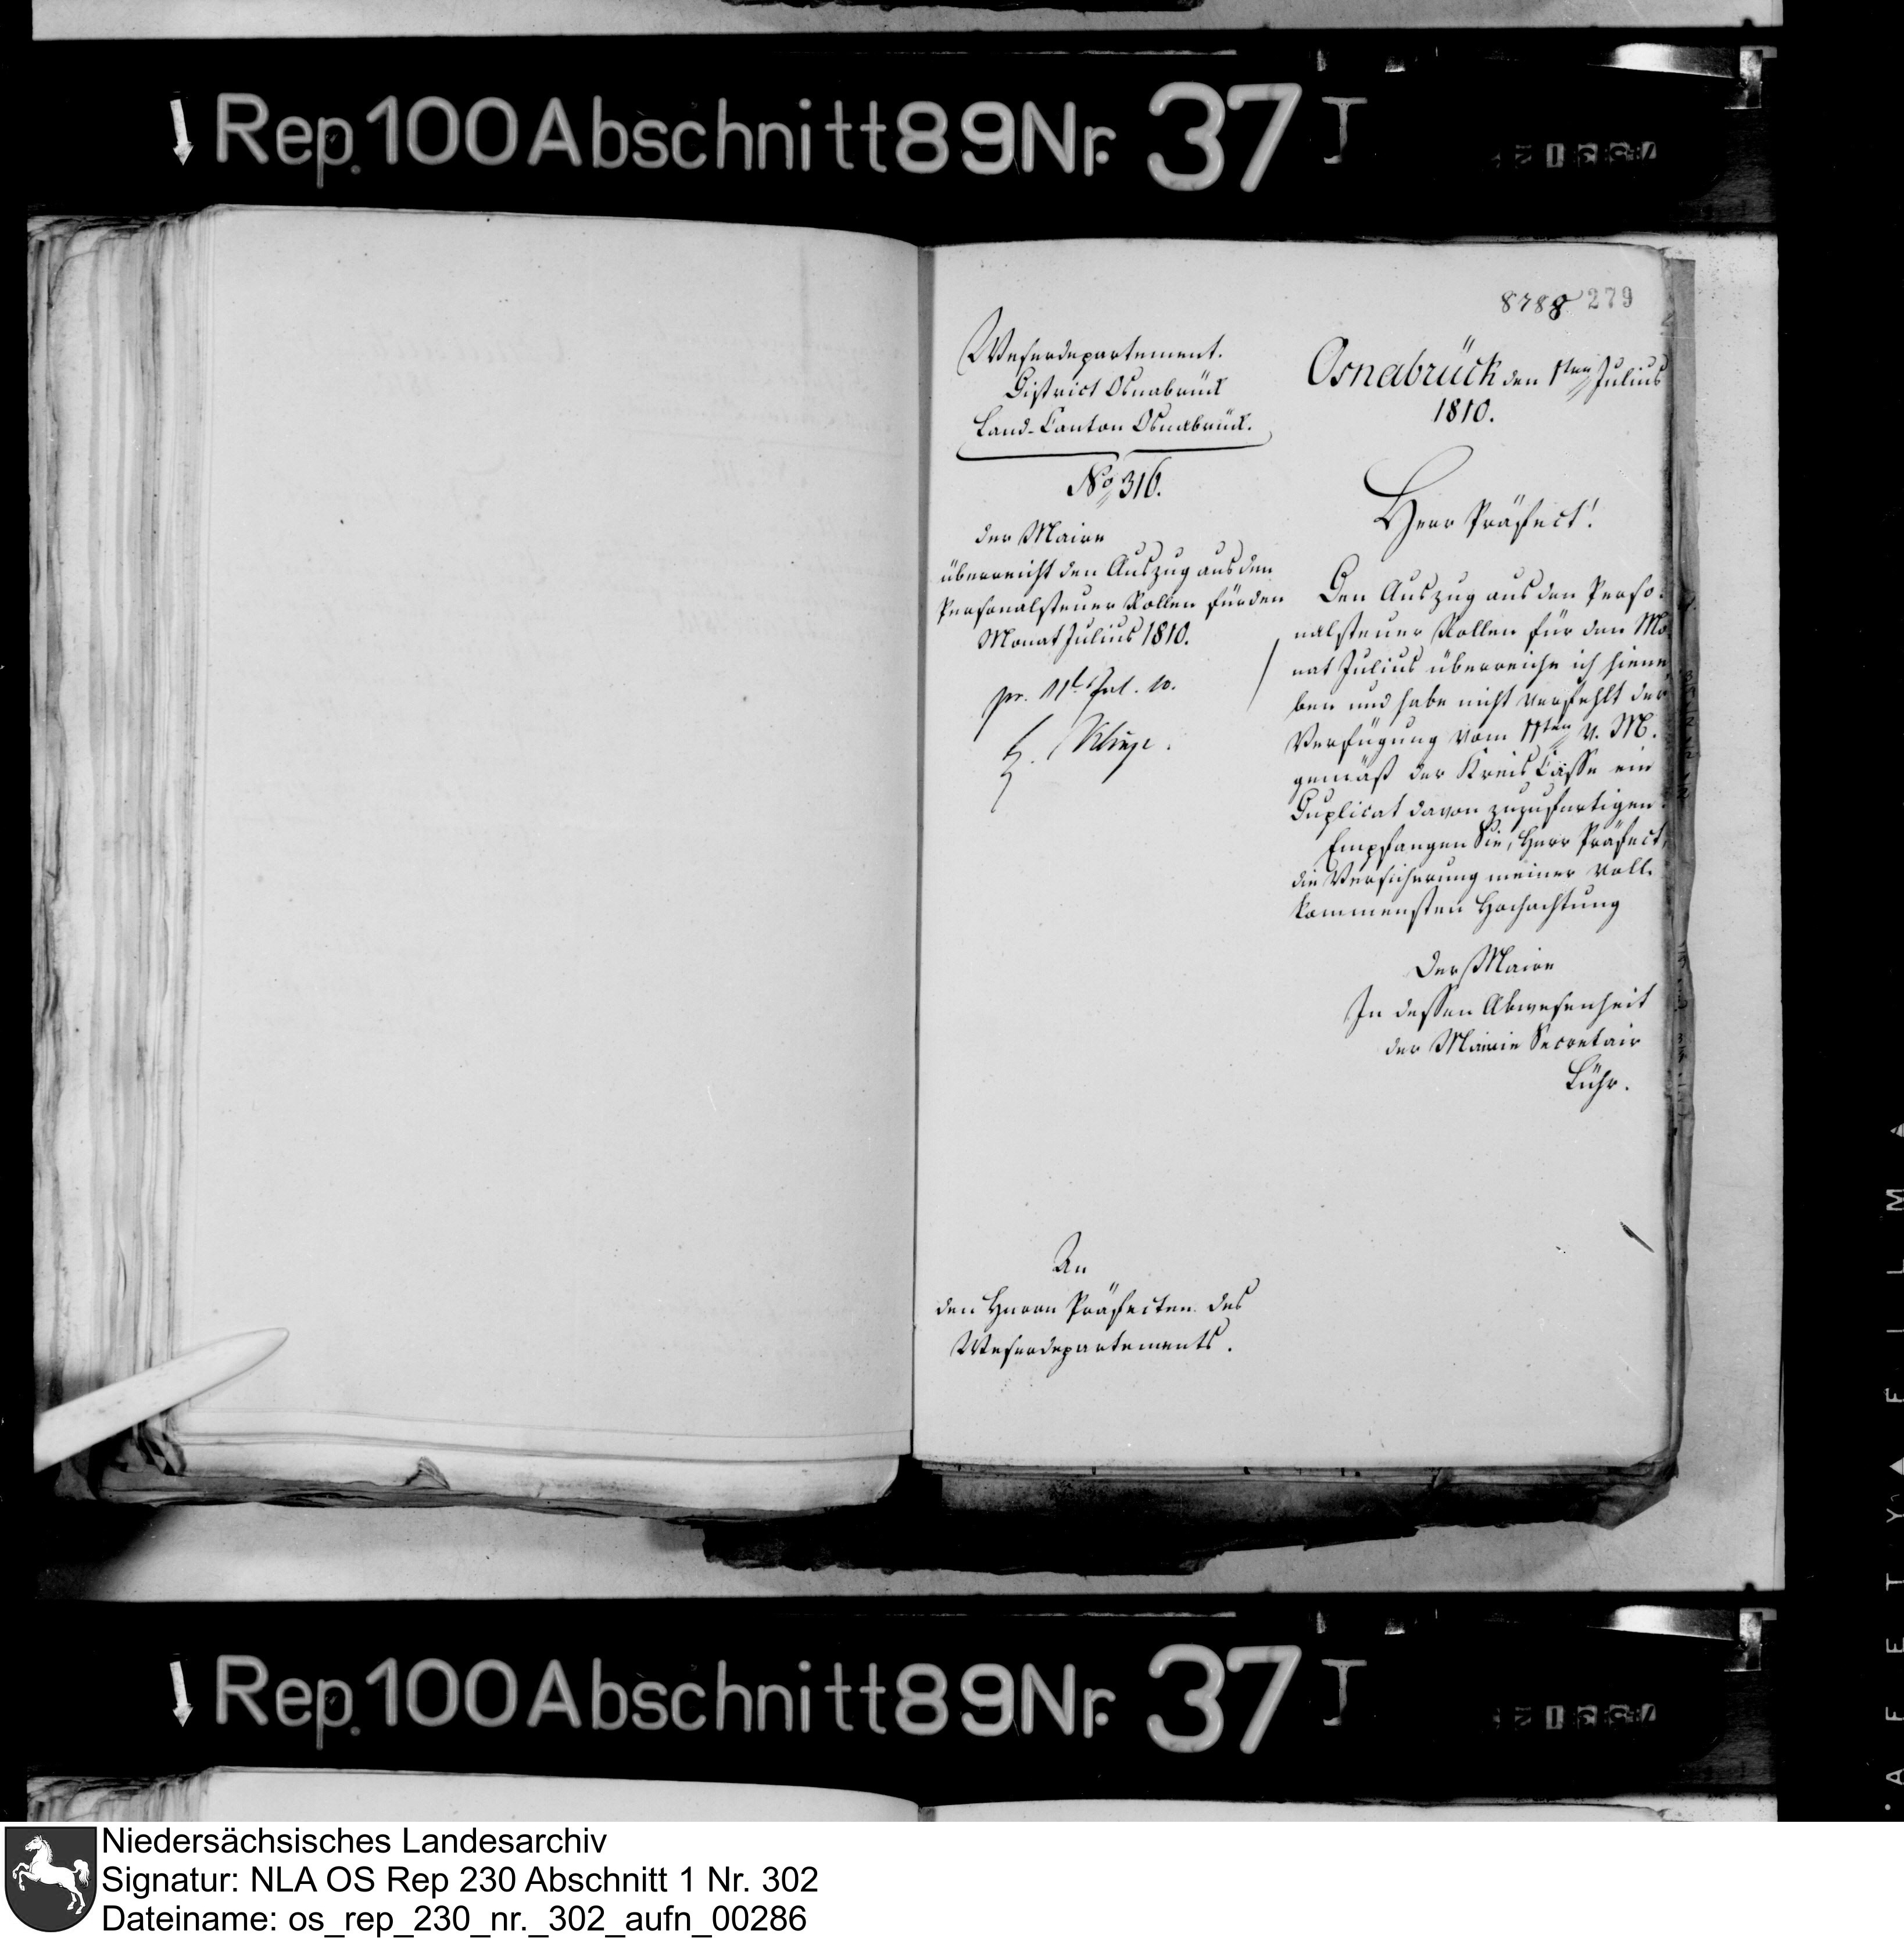 Rep. 100 Abschnitt 89 Nr. 37 I
8788 279
Weserdepartement.
District Osnabrück
Land-Canton Osnabrück.
No 316.
der Maire
überreicht den Auszug aus den
Personalsteuer Rollen für den
Monat Julius 1810.
pr. 11t Jul. 10.
Osnabrück den 1ten Julius
1810.
Herr Präfect!
Den Auszug aus den Perso:
nalsteuer Rollen für den Mo
nat Julius überreiche ich hiene
ben und habe nicht verfehlt der
Verfügung vom 11ten v. M.
gemäß der Kreis Casse ein
Duplicat davon zuzufertigen.
Empfangen Sie, Herr Präfect,
die Versicherung meiner voll.
kommensten Hochachtung
Der Maire
In dessen Abwesenheit
der Mairie Secretair
Lühr.
An
den Herrn Präfecten des
Weserdepartements.
Rep. 100 Abschnitt 89 Nr. 37 I
Niedersächsisches Landesarchiv
Signatur: NLA OS Rep 230 Abschnitt 1 Nr. 302
Dateiname: os_rep_230_nr._302_aufn_00286